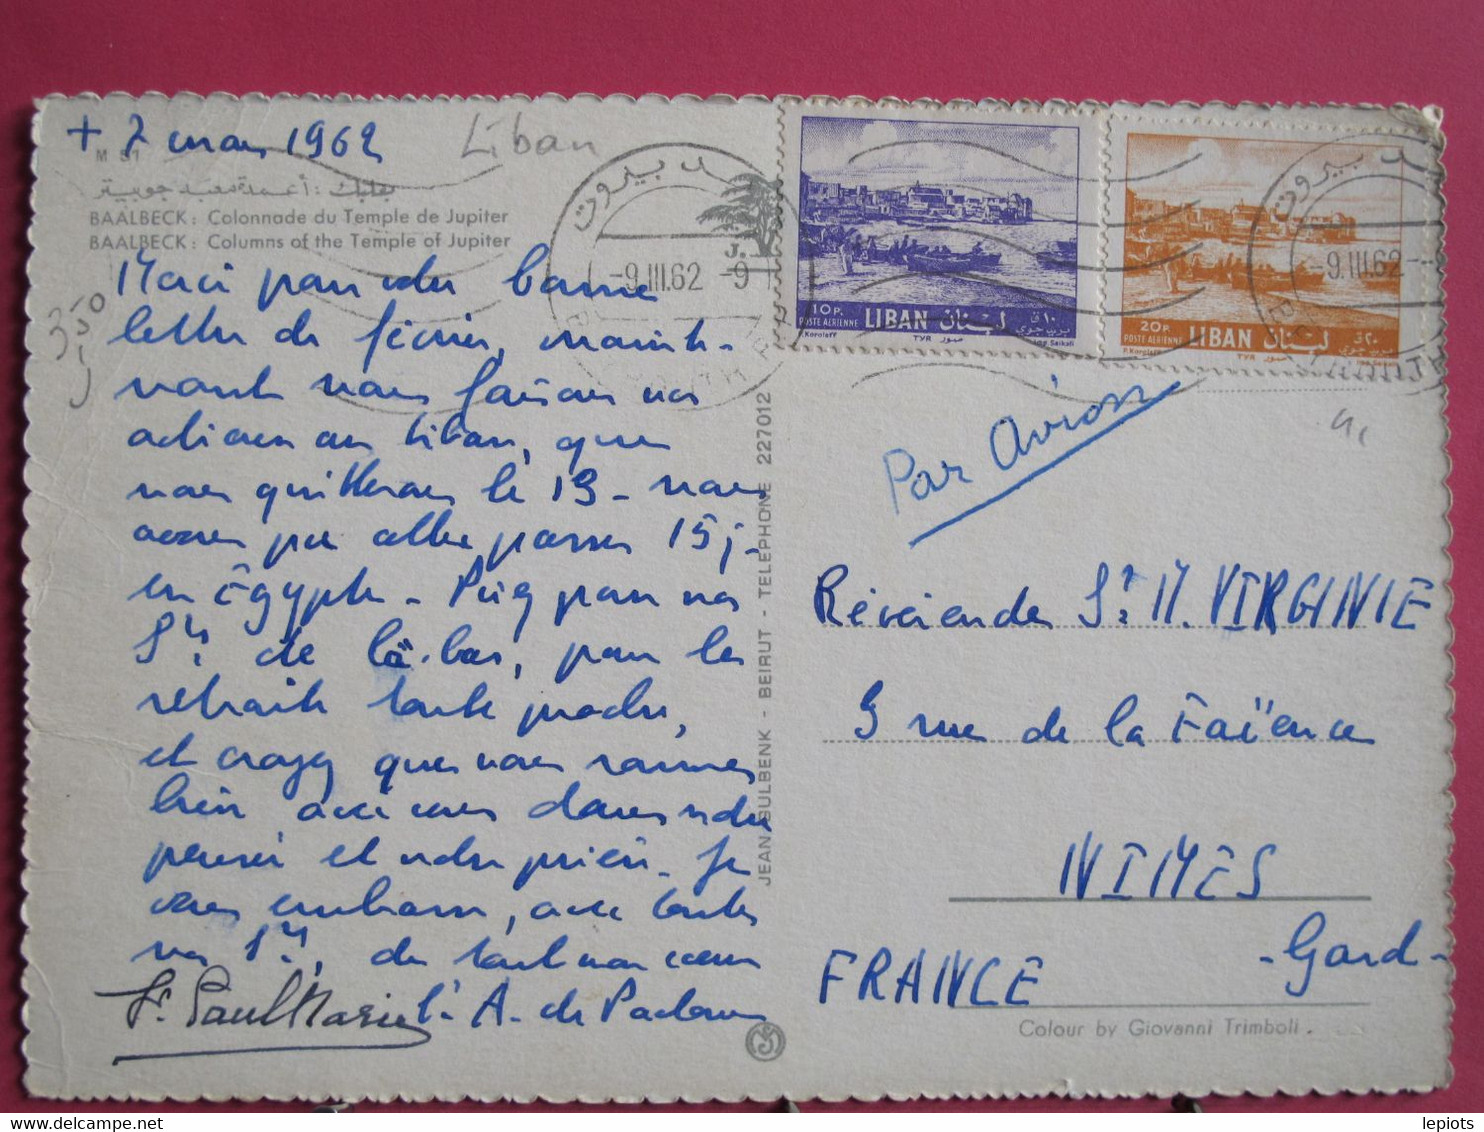 + 7 mars 1962
Liban
M 51
بعلبك : أعمدة معبد جوبيتر
BAALBECK : Colonnade du Temple de Jupiter
BAALBECK : Columns of the Temple of Jupiter
Merci pour votre bonne
lettre de février, mainte-
nant nous faisons nos
adieux au Liban, que
nous quitterons le 13 - nous
avons pu aller passer 15 j.
en Égypte - Priez pour nos
Srs de là-bas, pour les
retraite toute proche,
et croyez que nous sommes
bien avec vous dans notre
pensée et notre prière. Je
vous embrasse, avec toutes
vos Srs, de tout mon cœur
Sr. Paul Marie A. de Padoue
350
JEAN SULBENK - BEIRUT - TELEPHONE 227012
بيروت
J.
-9.III.62 -9
BEYROUTH
10P.
POSTE AÉRIENNE LIBAN لبنان
١٠ق
بريد جوي
P. Koroleff TYR صور Imp Saikali
20P.
POSTE AÉRIENNE LIBAN لبنان
٢٠ق
بريد جوي
P. Koroleff TYR صور
بيروت
-9.III.62-
Par Avion
Révérende Sr M. VIRGINIE
9 rue de la Faïence
NIMES
- Gard -
FRANCE
Colour by Giovanni Trimboli .
lepiots